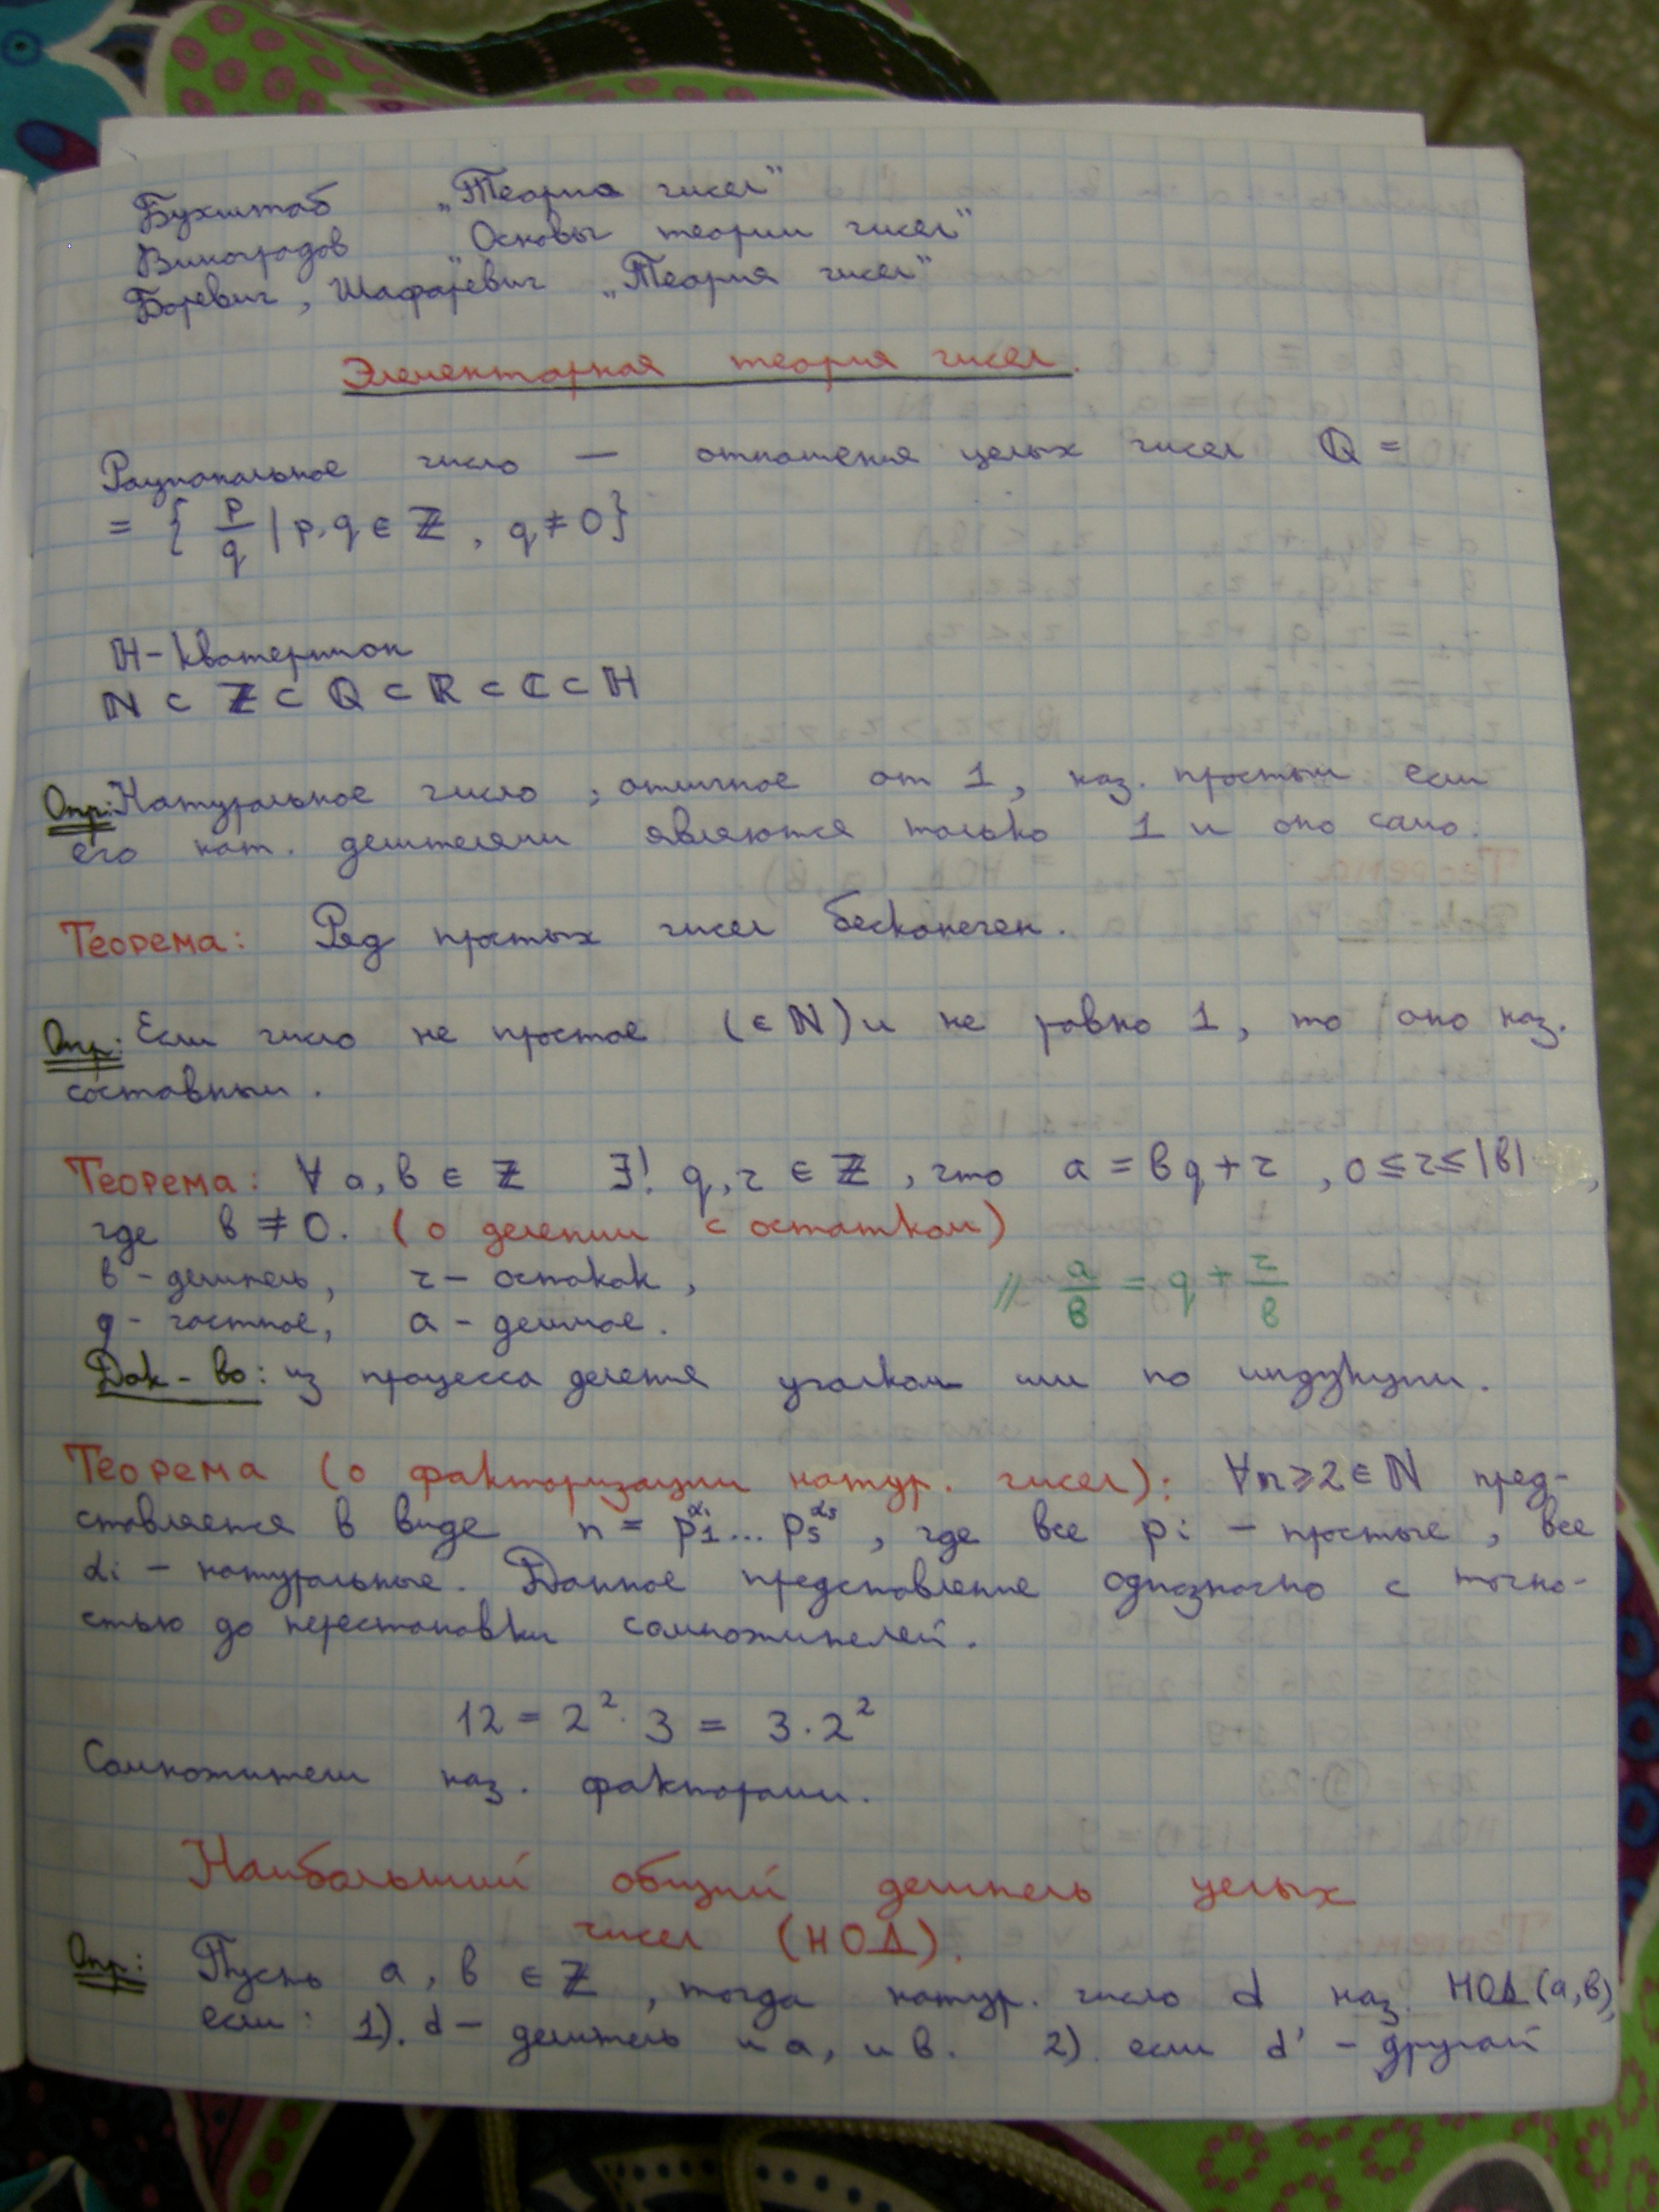 Бухштаб „Теория чисел"
Виноградов "Основы теории чисел"
Боревич, Шафаревич „Теория чисел"
Элементарная теория чисел.
Рациональное число — отношения целых чисел ℚ =
= { p/q | p, q ∈ ℤ, q ≠ 0}
ℍ - кватернион
ℕ ⊂ ℤ ⊂ ℚ ⊂ ℝ ⊂ ℂ ⊂ ℍ
Опр: Натуральное число, отличное от 1, наз. простым если
его нат. делителями являются только 1 и оно само.
Теорема: Ряд простых чисел бесконечен.
Опр: Если число не простое (∈ ℕ) и не равно 1, то оно наз.
составным.
Теорема: ∀ a, b ∈ ℤ ∃! q, r ∈ ℤ, что a = bq + r, 0 ≤ r ≤ |b|,
где b ≠ 0. (о делении с остатком)
b - делитель, r - остакок,
q - частное, a - делимое. // a/b = q + r/b
Док-во: из процесса деления уголком или по индукции.
Теорема (о факторизации натур. чисел): ∀n ⩾ 2 ∈ ℕ пред-
ставляется в виде n = p₁^α₁ ... pₛ^αₛ, где все pᵢ - простые, все
αᵢ - натуральные. Данное представление однозначно с точно-
стью до перестановки сомножителей.
12 = 2² · 3 = 3 · 2²
Сомножители наз. факторами.
Наибольший общий делитель целых
чисел (НОД).
Опр: Пусть a, b ∈ ℤ, тогда натур. число d наз. НОД (a, b),
если: 1). d - делитель и a, и b. 2) если d' - другой